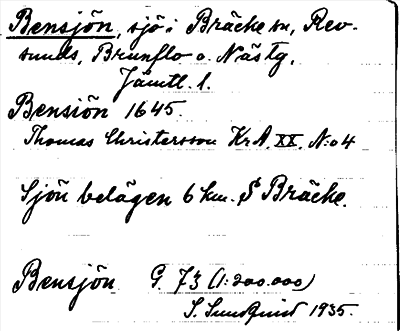 Bensjön, sjö i Bräcke sn, Rev-
sunds, Brunflo o. Nästg.
Jämtl. l.
Bensiön 1645.
Thomas Christersson KrA. XX. N:o 4
Sjön belägen 6 km. S Bräcke.
Bensjön G. 73 (1:200.000)
S. Sundquist 1935.